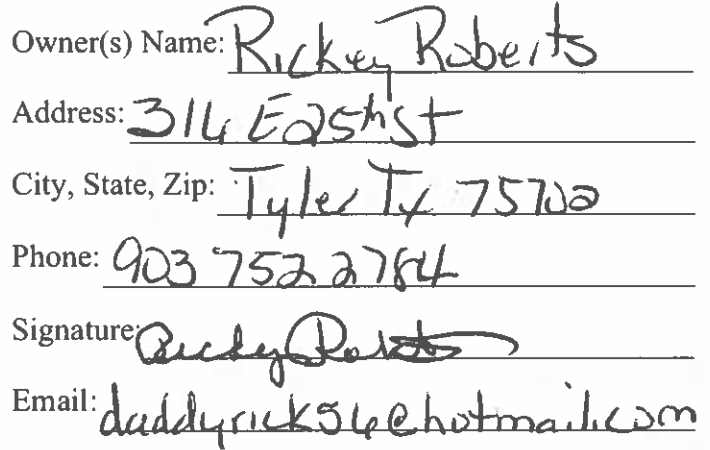 Owner(s) Name: Rickey Roberts
Address: 316 E 25th St
City, State, Zip: Tyler Tx 75702
Phone: 903 752 2784
Signature:
Email: daddyrick56@hotmail.com